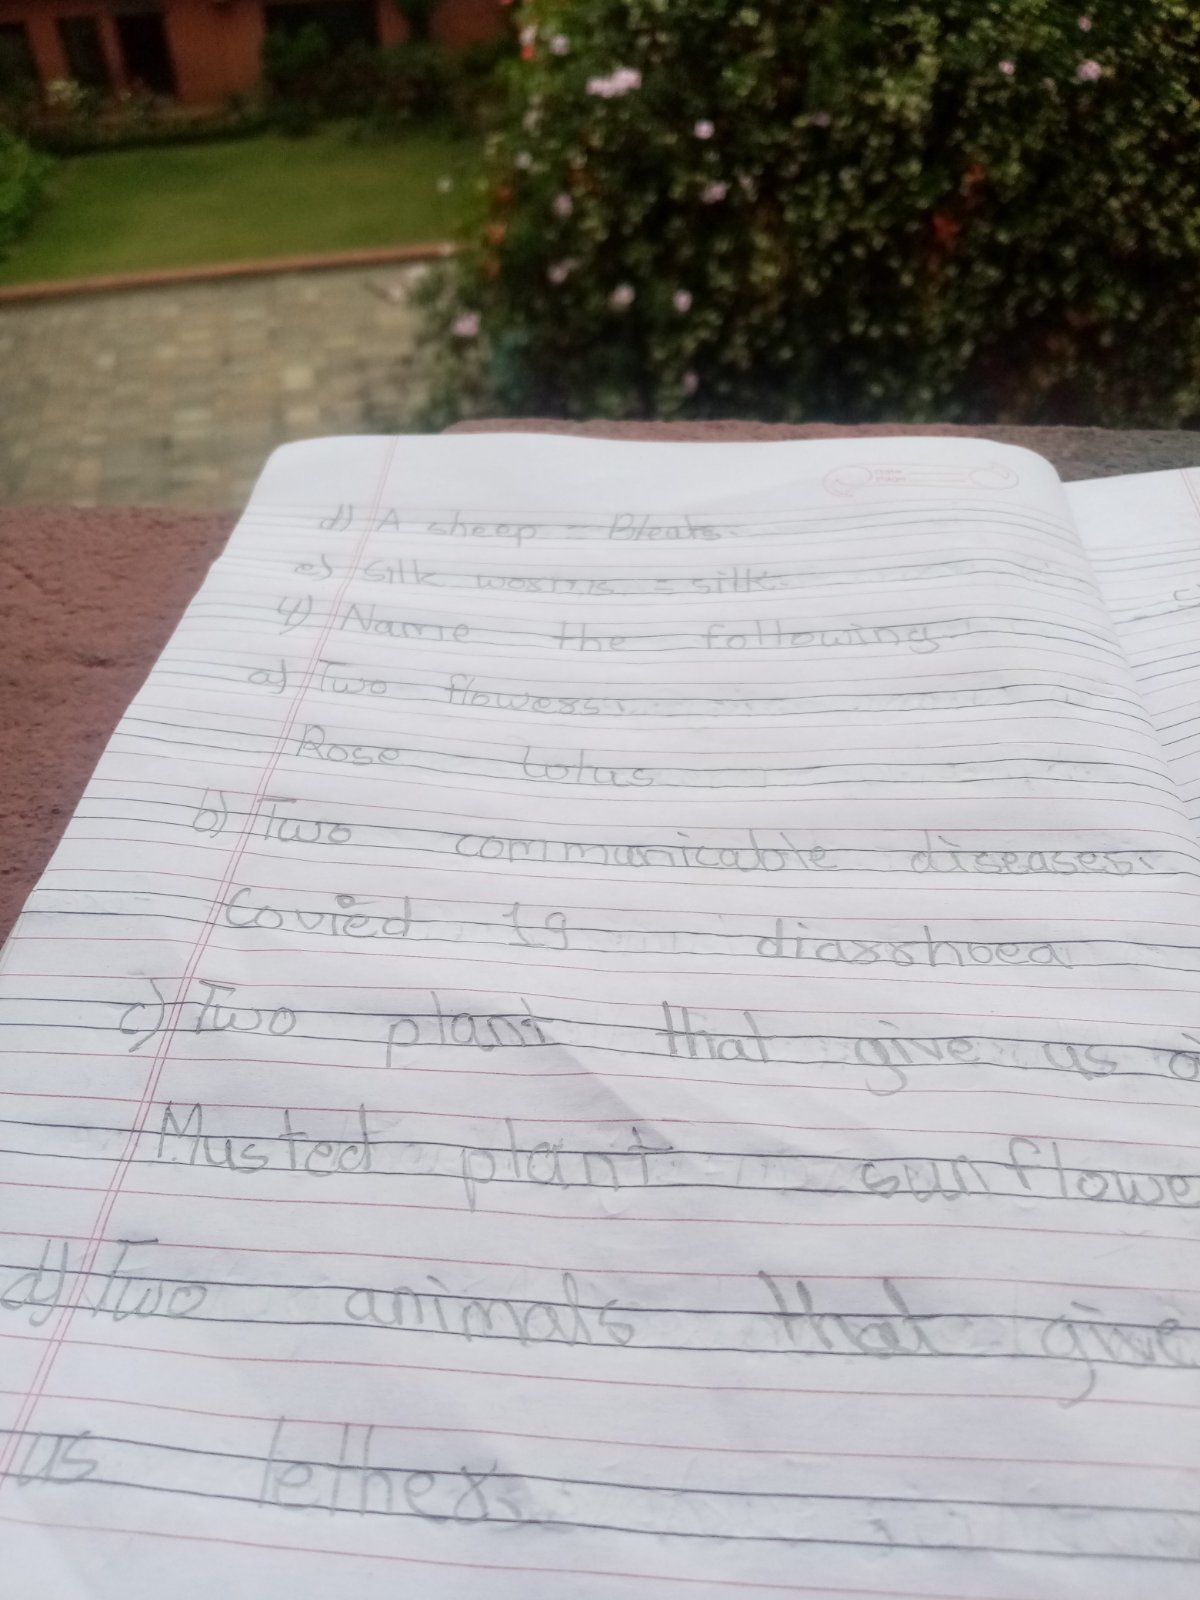 d) A sheep = Bleats.
e) Silk worms = silk.
4) Name the following
a) Two flowers.
Rose Lotus
b) Two communicable diseases.
Covied 19 diarrhoea
c) Two plant that give us
Musted plant sunflowe
d) Two animals that give
us lether.